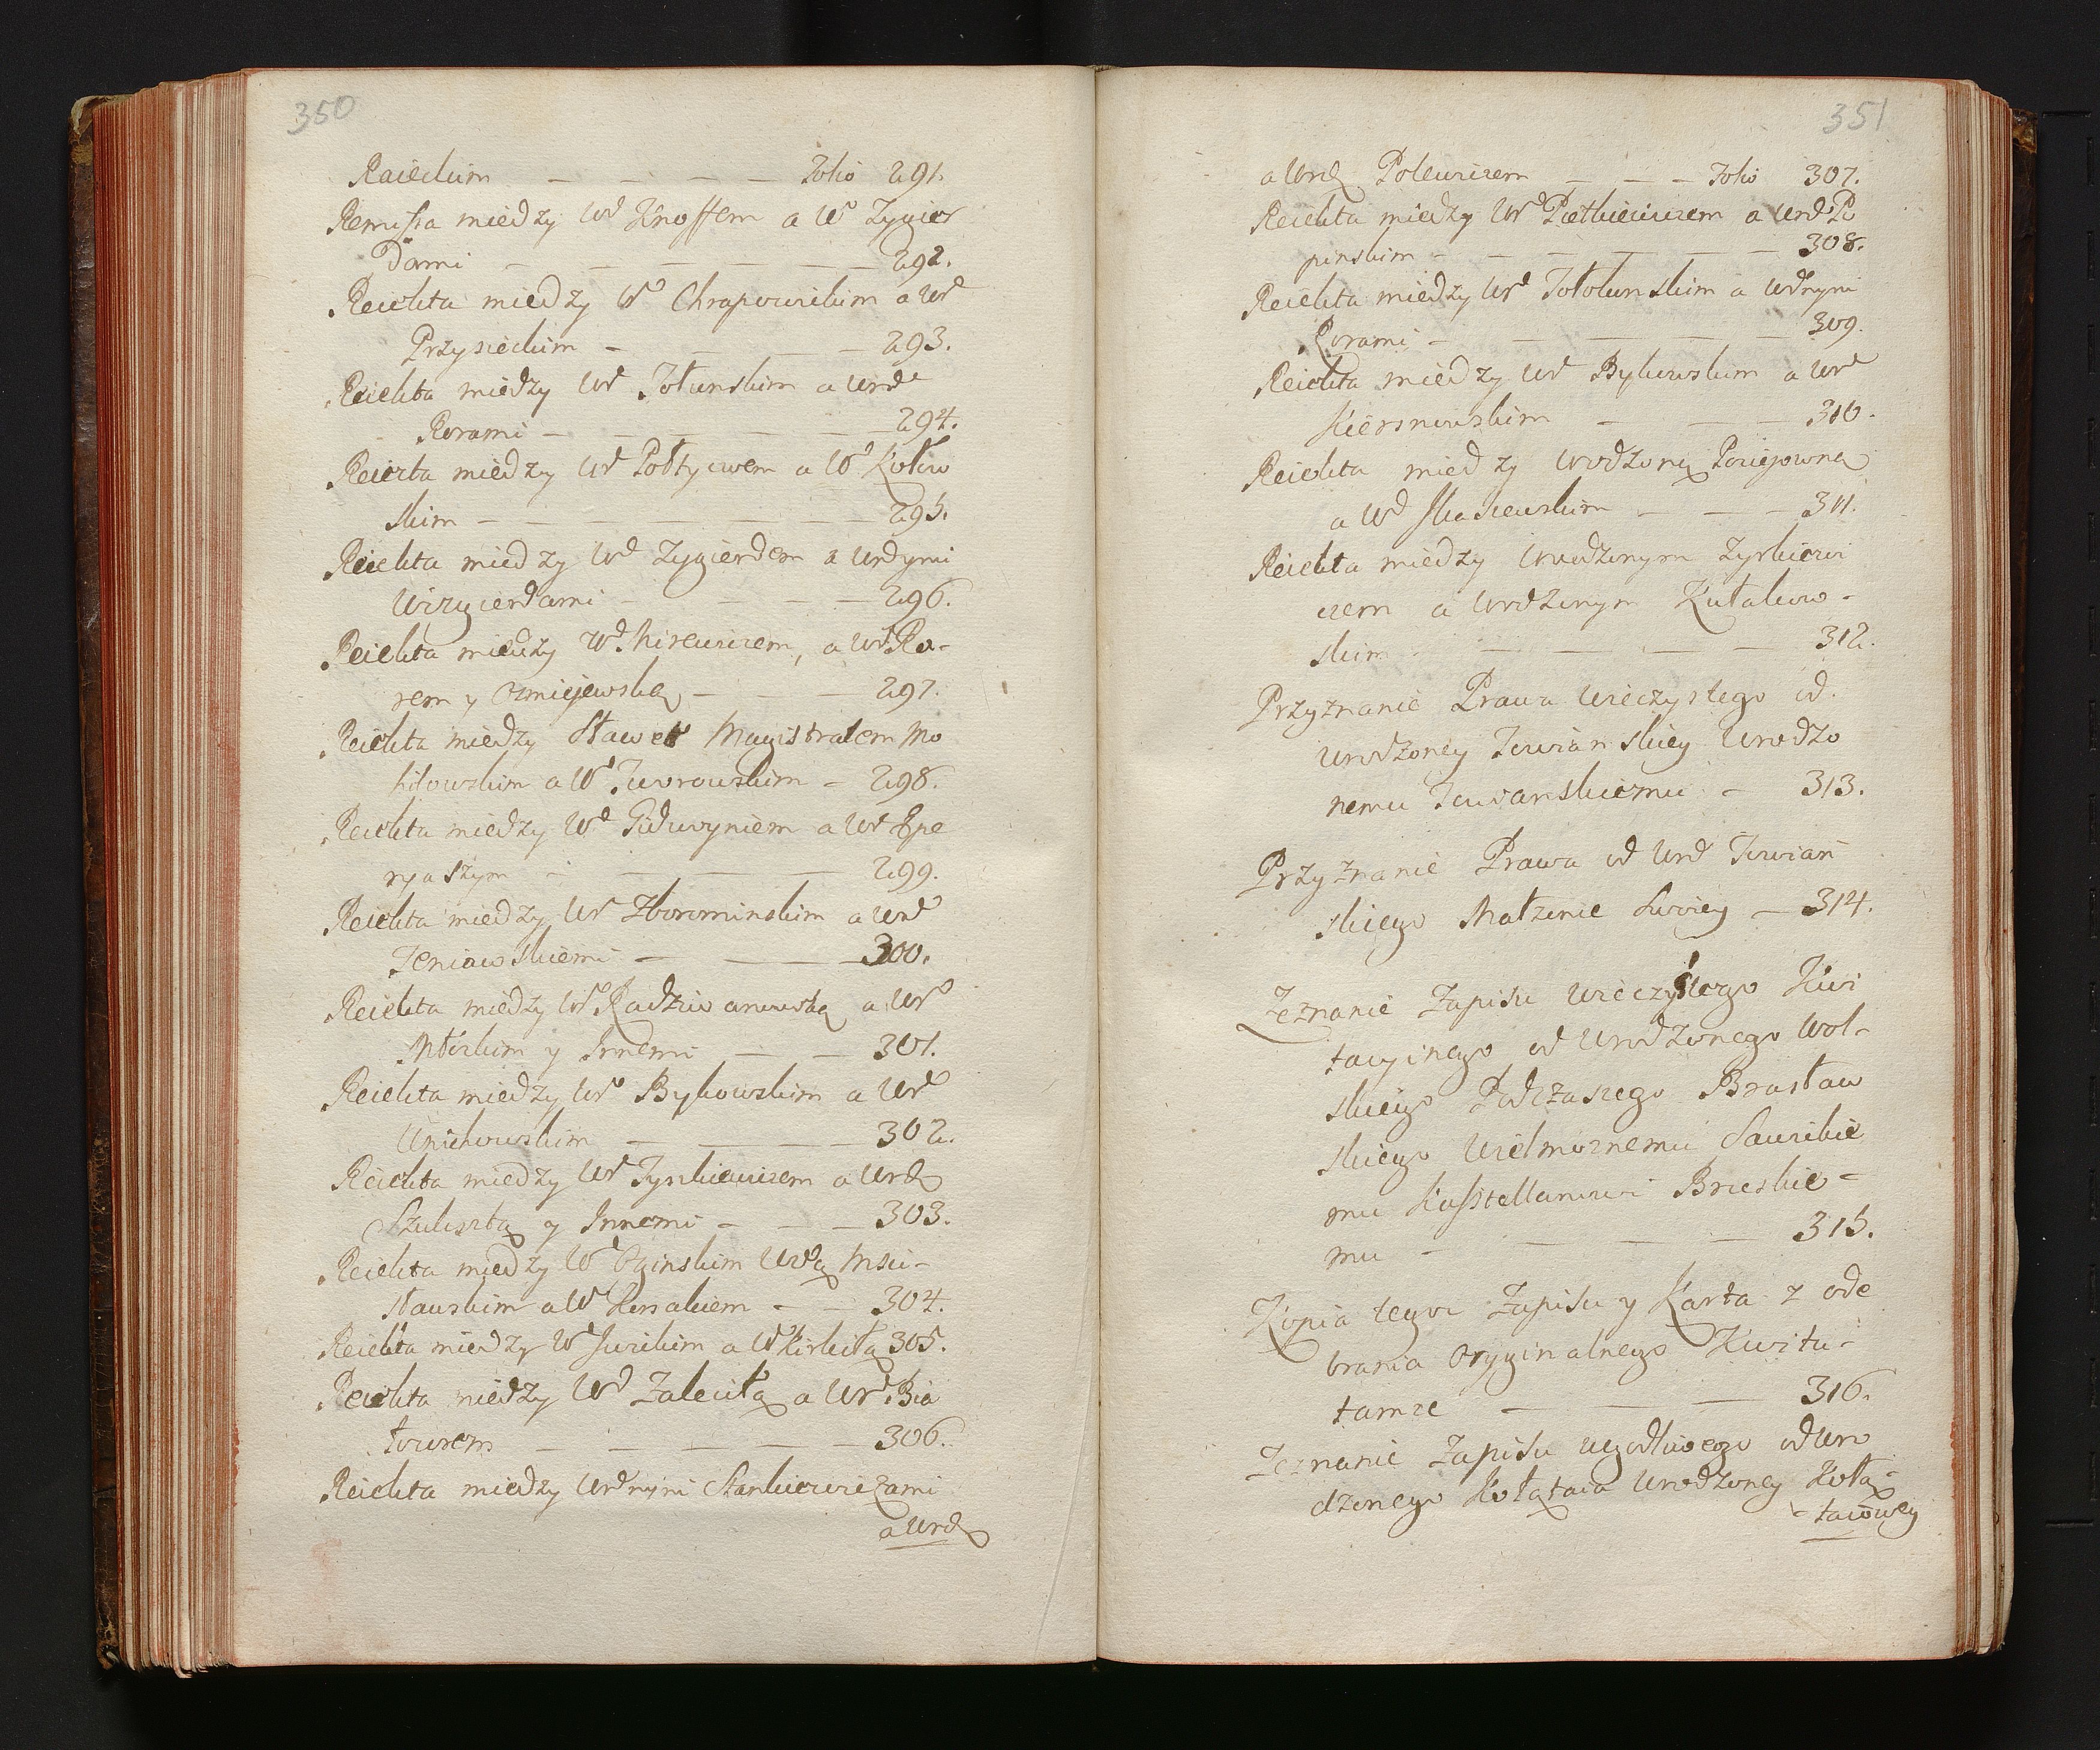 350
Raieckim — — — — Folio 291.
Remissa między Ur Knoffem a Ur Zygier
dami — — — — — — 292.
Reiekta między Ur Chrapowickim a Ur
Przysieckim — — — — 293.
Reiekta między Ur Tołunskim a Urd
Korami — — — — — 294.
Reiekta między Ur Połtycwem a Ur Kotow
skim — — — — — — 295.
Reiekta między Ur Zygierdem a Urdymi
Wizgierdami — — — — 296.
Reiekta między Ur Mirewiczem, a Ur Ko-
rem y Omiejewską — — — 297.
Reiekta między Sławet Magistratem Mo
hilowskim a Ur Jworowskim — 298.
Reiekta między Ur Giduwyniem a Ur Epe
ryaszym — — — — 299.
Reiekta między Ur Zboromirskim a Urd
Jeniawskiemi — — — 300.
Reiekta między Ur Radziwanowską a Ur
Mścickim y Jnnemi — — 301.
Reiekta między Ur Bykowskim a Ur
Unichowskim — — — — 302.
Reiekta między Ur Tyszkiewiczem a Urd
Szuksztą y Jnnemi — — — 303.
Reiekta między Ur Oginskim Wdą Msci-
sławskim a Ur Korsakiem — — 304.
Reiekta między Ur Jurickim a Ur Kirkiłą 305.
Reiekta między Ur Zakiułą a Ur Bia
łowsem — — — — — 306.
Reiekta między Urdnymi Stankiewiczami
a Urd
351
a Urd Polewiczem — — — Folio 307.
Reiekta między Ur Pietkiewiczem a Urd Po
pinskim — — — — — — 308.
Reiekta między Ur Tołokunskim a Udnymi
Korami — — — — — — 309.
Reiekta między Ur Bykowskim a Ur
Kiersnowskim — — — 310.
Reiekta między Urodzoną Pociejowną
a Ur Skaszewskim — — — 311.
Reiekta między Urodzonym Zyrkiewi
czem a Urodzonym Kułakow-
skim — — — — — 312.
Przyznanie Prawa wieczystego od
Urodzoney Towianskiey Urodzo
nemu Towianskiemu — 313.
Przyznanie Prawa od Urd Towiań
skiego Małżenie Swoiey — 314.
Zeznanie Zapisu wieczystego Kwi
tacyinego od Urodzonego Wol-
skiego Podczaszego Brasław
skiego Wielmożnemu Sawickie
mu Kasztellanowi Brzeskie-
mu — — — — — 315.
Kopia tegoż Zapisu y Karta z ode
brania Oryginalnego Kwitu-
tamże — — — — 316.
Zeznanie Zapisu ugodliwego od Uro
dzonego Kołątaia Urodzoney Kołą-
-taiowey